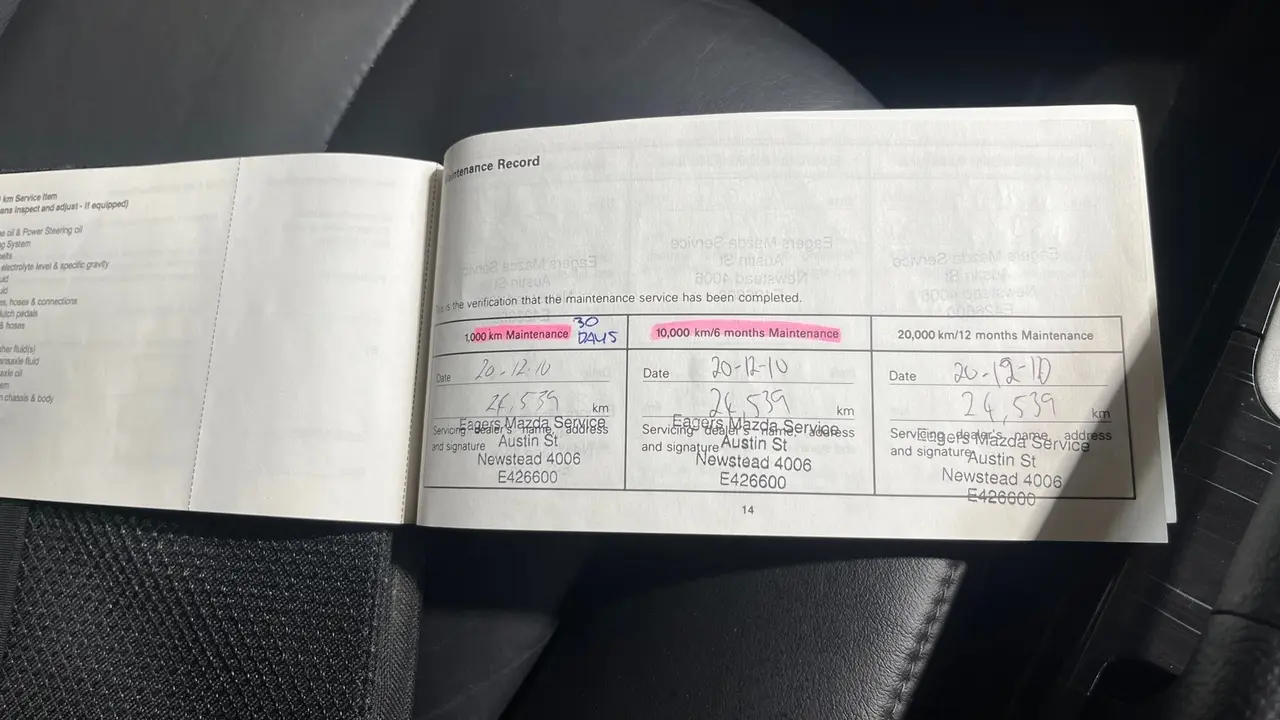 km Service Item
ans Inspect and adjust - If equipped)
e oil & Power Steering oil
g System
elts
electrolyte level & specific gravity
uid
uid
es, hoses & connections
lutch pedals
& hoses
her fluid(s)
ansaxle fluid
axle oil
em
n chassis & body
intenance Record
is the verification that the maintenance service has been completed.
1,000 km Maintenance 30 DAYS
10,000 km/6 months Maintenance
20,000 km/12 months Maintenance
Date 20-12-10
24,539 km
Servicing dealer's name, address
and signature
Eagers Mazda Service
Austin St
Newstead 4006
E426600
Date 20-12-10
24,539 km
Servicing dealer's name, address
and signature
Eagers Mazda Service
Austin St
Newstead 4006
E426600
Date 20-12-10
24,539 km
Servicing dealer's name, address
and signature
Eagers Mazda Service
Austin St
Newstead 4006
E426600
14